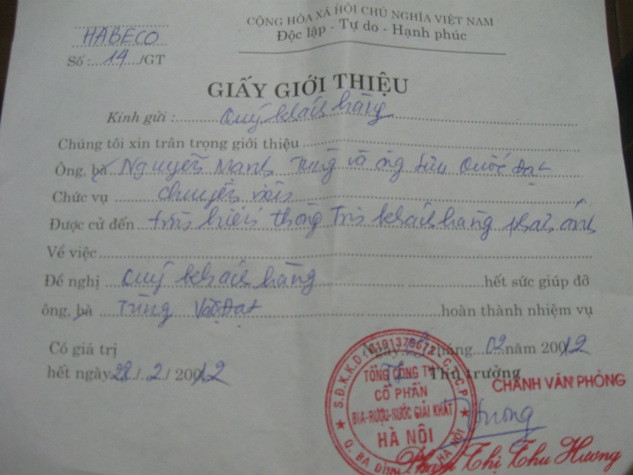 CỘNG HÒA XÃ HỘI CHỦ NGHĨA VIỆT NAM
HABECO
Độc lập - Tự do - Hạnh phúc
Số :.....19..../GT
GIẤY GIỚI THIỆU
Kính gửi : Quý khách hàng
Chúng tôi xin trân trọng giới thiệu
Ông, bà Nguyễn Mạnh Tùng và ông Lưu Quốc Đạt
Chức vụ chuyên viên
Được cử đến tìm hiểu thông tin khách hàng phản ánh
Về việc
Đề nghị quý khách hàng hết sức giúp đỡ
ông, bà Tùng và Đạt hoàn thành nhiệm vụ
Có giá trị
ngày tháng 02 năm 2012
hết ngày 28 / 2 / 2012
Thủ trưởng
CHÁNH VĂN PHÒNG
TỔNG CÔNG TY
CỔ PHẦN
BIA-RƯỢU-NƯỚC GIẢI KHÁT
HÀ NỘI
Q. BA ĐÌNH HÀ NỘI
Phạm Thị Thu Hương